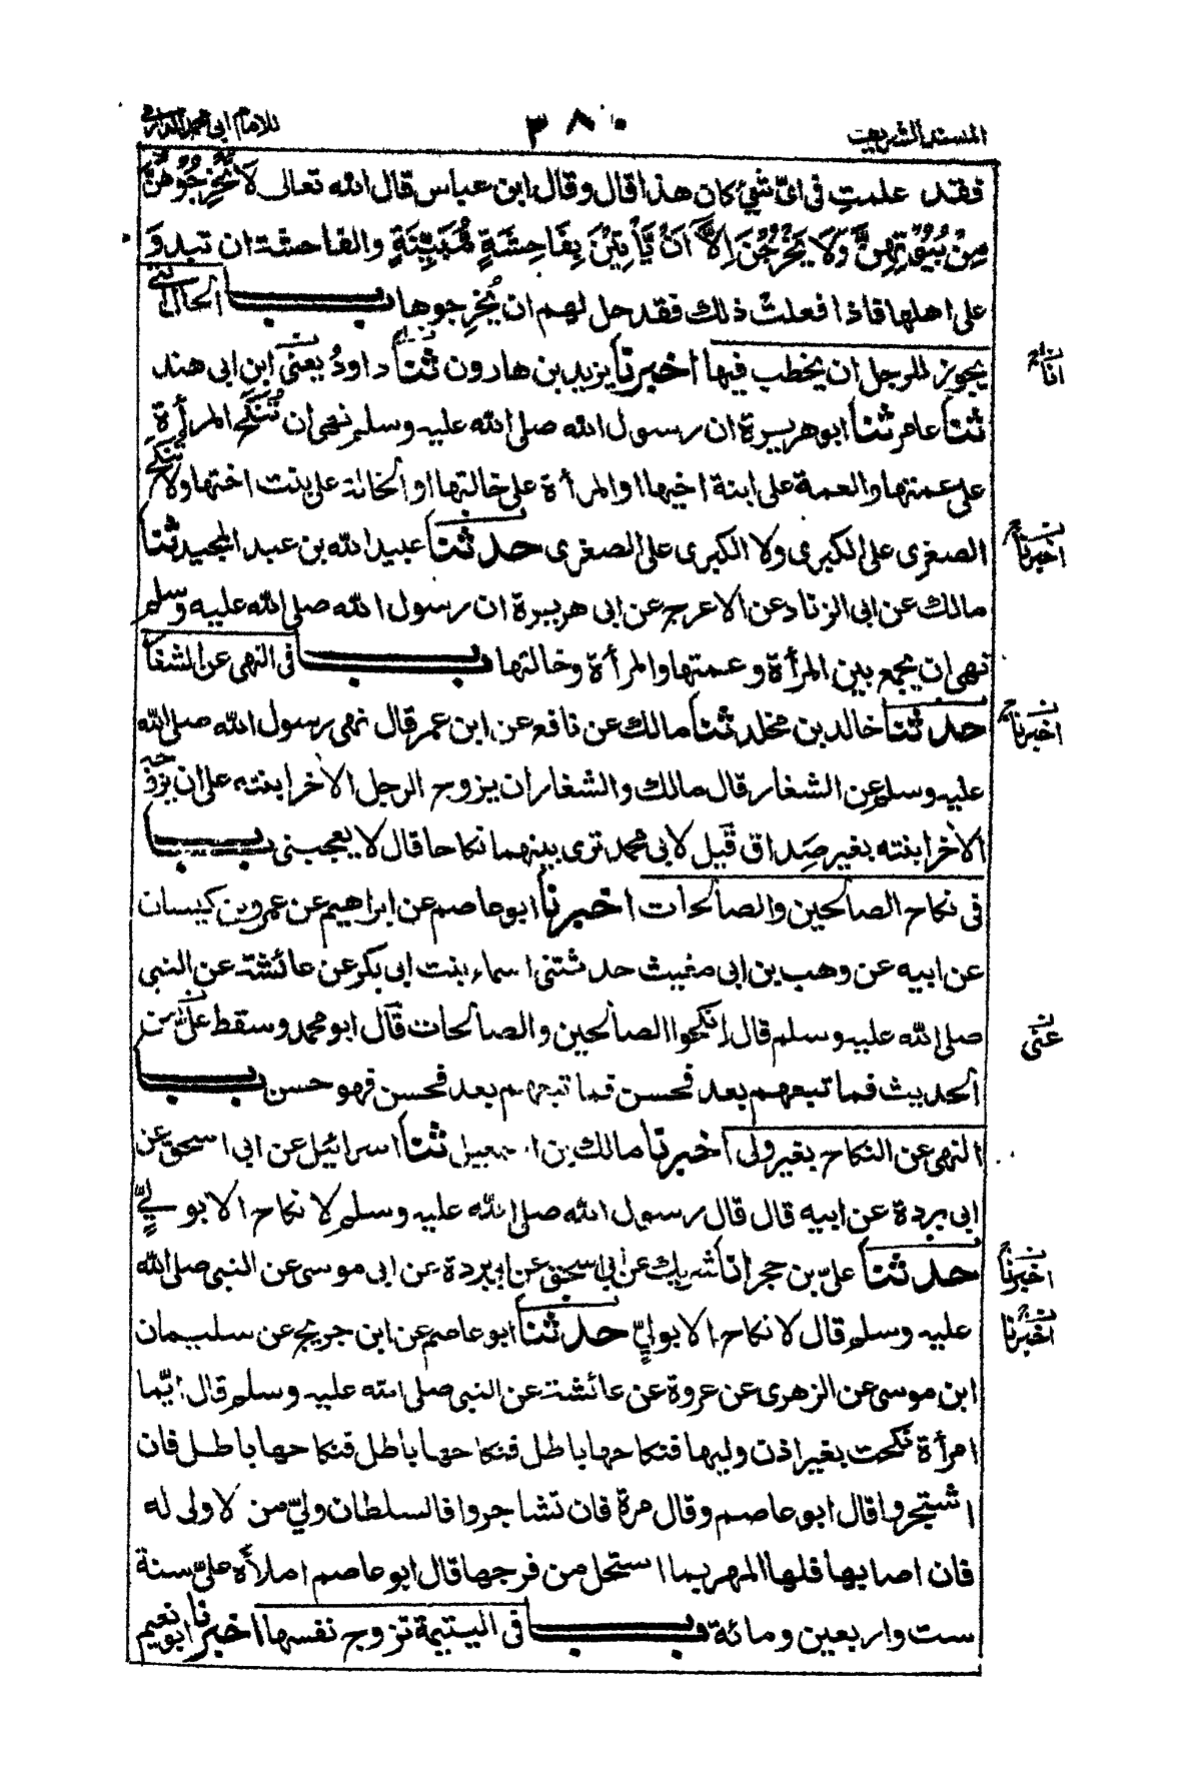 المسند الشريف
٣٨٠
للامام ابى محمد الدارمى
فقد علمتِ فى اىّ شئ كان هذا قال وقال ابن عباس قال الله تعالى لَا تُخْرِجُوْهُنَّ
مِنْ بُيُوْتِهِنَّ وَلَا يَخْرُجْنَ اِلَّا اَنْ يَّأْتِيْنَ بِفَاحِشَةٍ مُّبَيِّنَةٍ والفاحشة ان تبذوَ
على اهلها فاذا فعلتْ ذلك فقد حل لهم ان يُخرِجوها باب الحال التى
يجوز للرجل ان يخطب فيها اخبرنا يزيد بن هارون ثنا داودُ يعنى ابن ابى هند
ثنا عامر ثنا ابو هريرة ان رسول الله صلى الله عليه وسلم نهى ان تُنكَح المرأة
على عمتها والعمة على ابنة اخيها او المرأة على خالتها او الخالة على بنت اختها ولا تنكح
الصغرى على الكبرى ولا الكبرى على الصغرى حدثنا عبيد الله بن عبد المجيد ثنا
مالك عن ابى الزناد عن الاعرج عن ابى هريرة ان رسول الله صلى الله عليه وسلم
نهى ان يجمع بين المرأة وعمتها والمرأة وخالتها باب فى النهى عن الشغا
حدثنا خالد بن مخلد ثنا مالك عن نافع عن ابن عمر قال نهى رسول الله صلى الله
عليه وسلم عن الشغار قال مالك والشغار ان يزوج الرجل الآخر ابنته على ان يزوّجه
الآخر ابنته بغير صِداق قيل لابى محمد ترى بينهما نكاحا قال لا يعجبنى باب
فى نكاح الصالحين والصالحات اخبرنا ابو عاصم عن ابراهيم عن عمرو بن كيسان
عن ابيه عن وهب بن ابى مغيث حدثتنى اسماء بنت ابى بكر عن عائشة عن النبى
صلى الله عليه وسلم قال انكحوا الصالحين والصالحات قال ابو محمد وسقط علىّ من
الحديث فما تبعهم بعد فحسن فما تبعهم بعد فحسن فهو حسن باب
النهى عن النكاح بغير ولى اخبرنا مالك بن اسمعيل ثنا اسرائيل عن ابى اسحق عن
ابى بردة عن ابيه قال قال رسول الله صلى الله عليه وسلم لا نكاح الا بولىٍّ
حدثنا علىّ بن حجر انا شريك عن ابى اسحق عن ابى بردة عن ابى موسى عن النبى صلى الله
عليه وسلم قال لا نكاح الا بولىٍّ حدثنا ابو عاصم عن ابن جريج عن سليمان
ابن موسى عن الزهرى عن عروة عن عائشة عن النبى صلى الله عليه وسلم قال ايّما
امرأة نكحت بغير اذن وليها فنكاحها باطل فنكاحها باطل فنكاحها باطل فان
اشتجروا قال ابو عاصم وقال مرة فان تشاجروا فالسلطان ولىّ من لا ولى له
فان اصابها فلها المهر بما استحل من فرجها قال ابو عاصم املأه علىّ سنة
ست واربعين ومائة باب فى اليتيمة تزوج نفسها اخبرنا ابو نعيم
انا
اخبرنا
اخبرنا
عنى
اخبرنا
اخبرنا